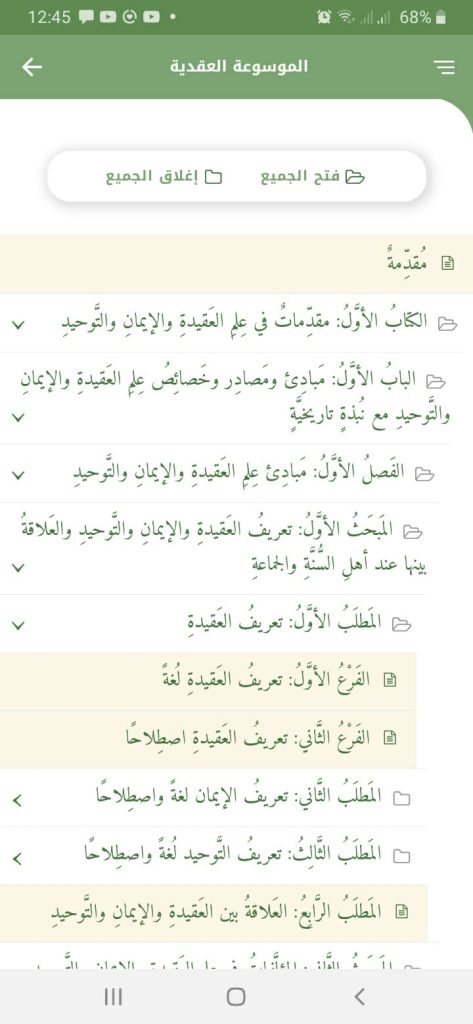 12:45
68%
الموسوعة العقدية
فتح الجميع
إغلاق الجميع
مُقدِّمةٌ
الكتابُ الأوَّلُ: مقدِّماتٌ في عِلمِ العَقيدةِ والإيمانِ والتَّوحيدِ
البابُ الأوَّلُ: مَبادِئ ومَصادِر وخَصائِصُ عِلمِ العَقيدةِ والإيمانِ
والتَّوحيدِ مع نُبذةٍ تاريخيَّةٍ
الفَصلُ الأوَّلُ: مَبادِئ عِلمِ العَقيدةِ والإيمانِ والتَّوحيدِ
المَبحَثُ الأوَّلُ: تعريفُ العَقيدةِ والإيمانِ والتَّوحيدِ والعَلاقةُ
بينها عند أهلِ السُّنَّةِ والجماعةِ
المَطلَبُ الأوَّلُ: تعريفُ العَقيدةِ
الفَرْعُ الأوَّلُ: تعريفُ العَقيدةِ لُغةً
الفَرْعُ الثَّاني: تعريفُ العَقيدةِ اصطِلاحًا
المَطلَبُ الثَّاني: تعريفُ الإيمان لغةً واصطِلاحًا
المَطلَبُ الثَّالِثُ: تعريفُ التَّوحيد لُغةً واصطِلاحًا
المَطلَبُ الرَّابِعُ: العَلاقةُ بين العَقيدةِ والإيمانِ والتَّوحيدِ